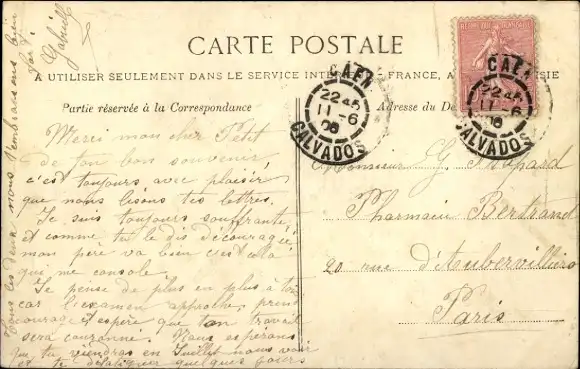 CARTE POSTALE
A UTILISER SEULEMENT DANS LE SERVICE FRANCE, A
Partie réservée à la Correspondance
Adresse du
CAEN
22 45
11-6
06
CALVADOS
CAEN
11-6
06
CALVADOS
Merci mon cher Petit
de ton bon souvenir
c'est toujours avec plaisir
que nous lisons tes lettres.
Je suis toujours souffrante,
et comme tu le dis découragée,
mon père va bien c'est cela
qui me console.
Je pense de plus en plus à toi
car l'examen approche, prend
courage et espère que ton travail
sera couronné. Nous espérons
que tu viendras en Juillet nous voir
et te quelques jours
Tous les deux nous t'embrassons bien
fort
Gabrielle
Monsieur G
Pharmacie Bertrand
20 rue d'Aubervilliers
Paris